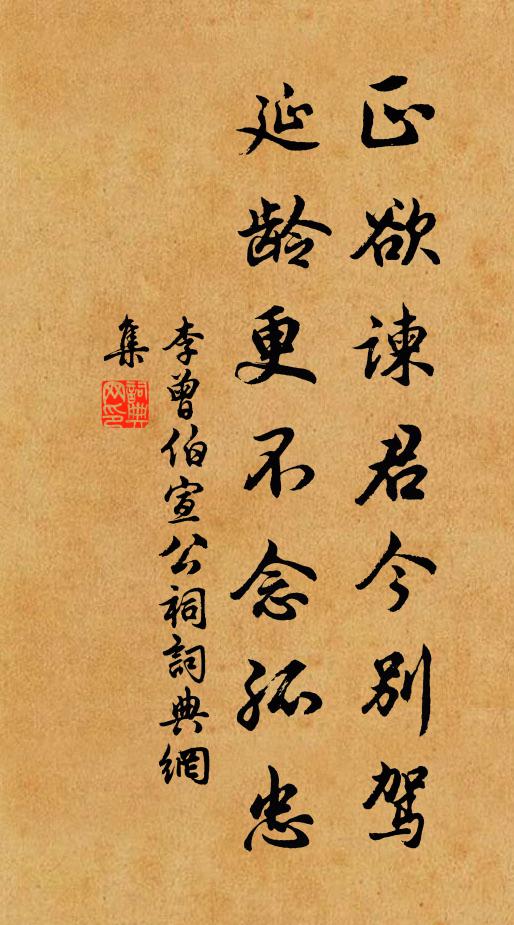 正欲谏君今别驾
延龄更不念孤忠
李曾伯宣公祠詞典網
集
詞典網印